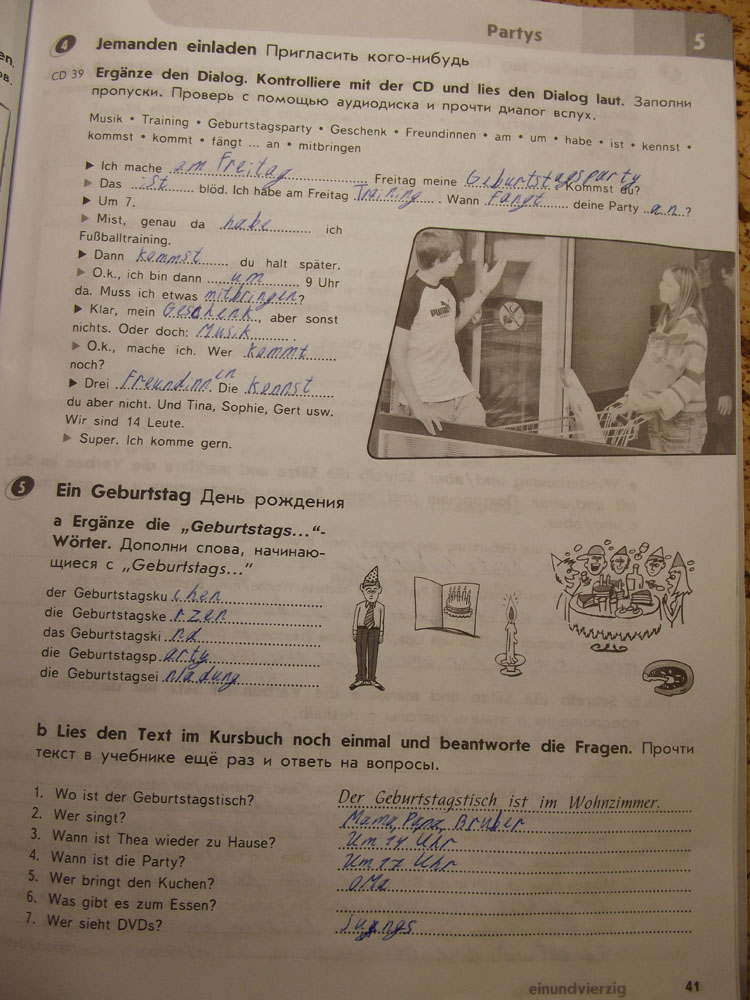 Partys
5
4 Jemanden einladen Пригласить кого-нибудь
CD 39 Ergänze den Dialog. Kontrolliere mit der CD und lies den Dialog laut. Заполни
пропуски. Проверь с помощью аудиодиска и прочти диалог вслух.
Musik • Training • Geburtstagsparty • Geschenk • Freundinnen • am • um • habe • ist • kennst •
kommst • kommt • fängt ... an • mitbringen
▶ Ich mache am Freitag Freitag meine Geburtstagsparty Kommst du?
▶ Das ist blöd. Ich habe am Freitag Training. Wann fängt deine Party an?
▶ Um 7.
▶ Mist, genau da habe ich
Fußballtraining.
▶ Dann kommst du halt später.
▶ O.k., ich bin dann um 9 Uhr
da. Muss ich etwas mitbringen?
▶ Klar, mein Geschenk, aber sonst
nichts. Oder doch: Musik.
▶ O.k., mache ich. Wer kommt
noch?
▶ Drei Freundinnen. Die kennst
du aber nicht. Und Tina, Sophie, Gert usw.
Wir sind 14 Leute.
▶ Super. Ich komme gern.
PUMA
5 Ein Geburtstag День рождения
a Ergänze die „Geburtstags...“-
Wörter. Дополни слова, начинаю-
щиеся с „Geburtstags...“
der Geburtstagskuchen
die Geburtstagskerzen
das Geburtstagskind
die Geburtstagsparty
die Geburtstagseinladung
b Lies den Text im Kursbuch noch einmal und beantworte die Fragen. Прочти
текст в учебнике ещё раз и ответь на вопросы.
1. Wo ist der Geburtstagstisch? Der Geburtstagstisch ist im Wohnzimmer.
2. Wer singt? Mama, Papa, Bruber
3. Wann ist Thea wieder zu Hause? Um 14 Uhr
4. Wann ist die Party? Um 17 Uhr
5. Wer bringt den Kuchen? OMa
6. Was gibt es zum Essen?
7. Wer sieht DVDs? Jungs
einundvierzig 41